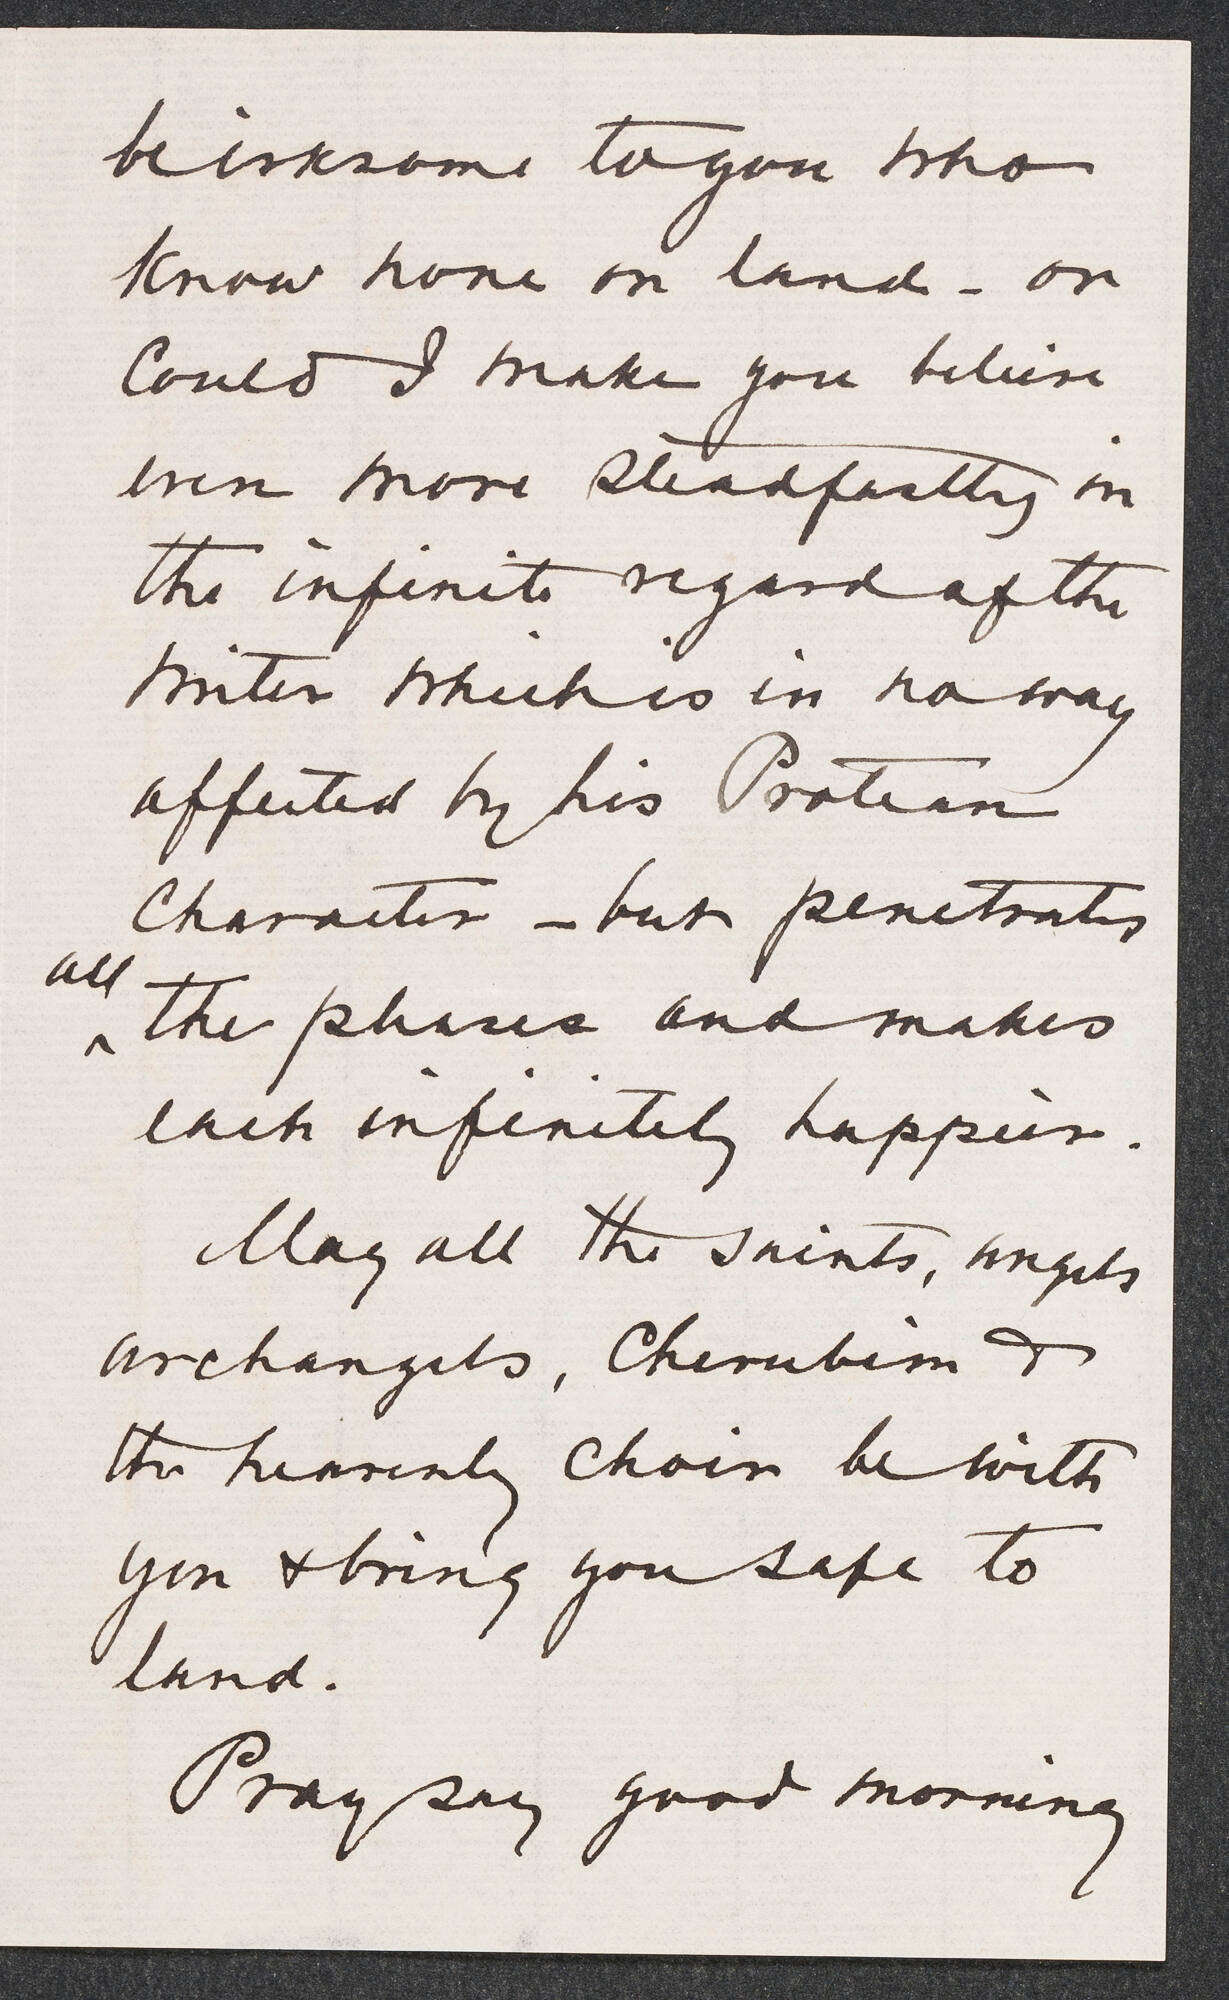 be irksome to you who
know none on land - or
Could I make you believe
even more steadfastly in
the infinite regard of the
writer which is in no way
affected by his Protean
Character - but penetrates
all
^ the phases and makes
each infinitely happier.
May all the saints, angels
archangels, Cherubim &
the heavenly Choir be with
you & bring you safe to
land.
Pray say good morning